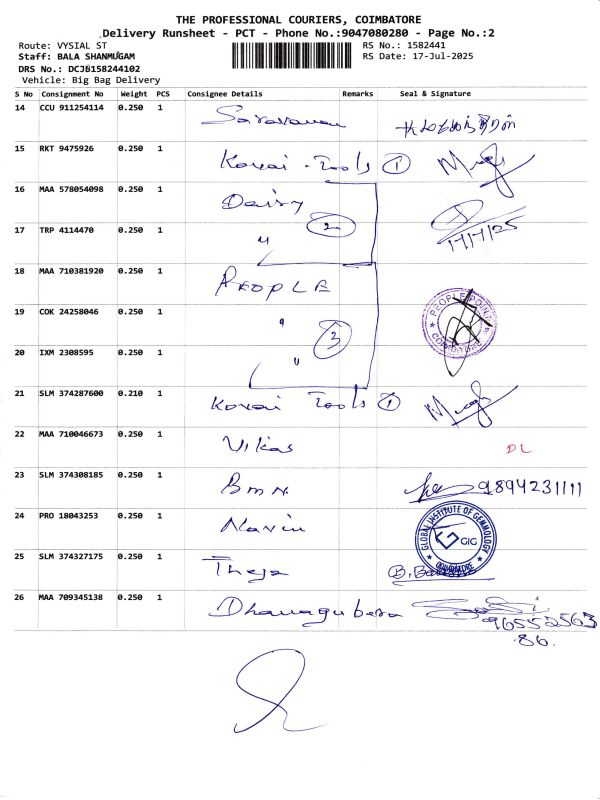 THE PROFESSIONAL COURIERS, COIMBATORE
Delivery Runsheet - PCT - Phone No.:9047080280 - Page No.:2
Route: VYSIAL ST
RS No.: 1582441
Staff: BALA SHANMUGAM
RS Date: 17-Jul-2025
DRS No.: DCJB158244102
Vehicle: Big Bag Delivery
S No Consignment No Weight PCS Consignee Details Remarks Seal & Signature
14 CCU 911254114 0.250 1 Saravanan
15 RKT 9475926 0.250 1 Kovai - Tools 1
16 MAA 578054098 0.250 1 Daisy
17 TRP 4114470 0.250 1 " 2 17/7/25
18 MAA 710381920 0.250 1 PEOPLE
19 COK 24258046 0.250 1 " PEOPLE POINT COIMBATORE
20 IXM 2308595 0.250 1 " 3
21 SLM 374287600 0.210 1 Kovai Tools 1
22 MAA 710046673 0.250 1 Vikas DL
23 SLM 374308185 0.250 1 BMH 9894231111
24 PRO 18043253 0.250 1 Navin GLOBAL INSTITUTE OF GEMMOLOGY GIG COIMBATORE
25 SLM 374327175 0.250 1 Theja
26 MAA 709345138 0.250 1 Dhanagubera 96552563
86.